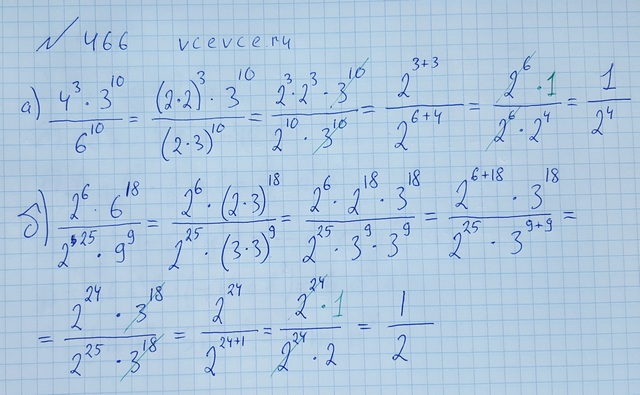 № 466 vcevce.ru
а) \frac{4^3 \cdot 3^{10}}{6^{10}} = \frac{(2 \cdot 2)^3 \cdot 3^{10}}{(2 \cdot 3)^{10}} = \frac{2^3 \cdot 2^3 \cdot 3^{10}}{2^{10} \cdot 3^{10}} = \frac{2^{3+3}}{2^{6+4}} = \frac{2^6 \cdot 1}{2^6 \cdot 2^4} = \frac{1}{2^4}
б) \frac{2^6 \cdot 6^{18}}{2^{25} \cdot 9^9} = \frac{2^6 \cdot (2 \cdot 3)^{18}}{2^{25} \cdot (3 \cdot 3)^9} = \frac{2^6 \cdot 2^{18} \cdot 3^{18}}{2^{25} \cdot 3^9 \cdot 3^9} = \frac{2^{6+18} \cdot 3^{18}}{2^{25} \cdot 3^{9+9}} =
= \frac{2^{24} \cdot 3^{18}}{2^{25} \cdot 3^{18}} = \frac{2^{24}}{2^{24+1}} = \frac{2^{24} \cdot 1}{2^{24} \cdot 2} = \frac{1}{2}